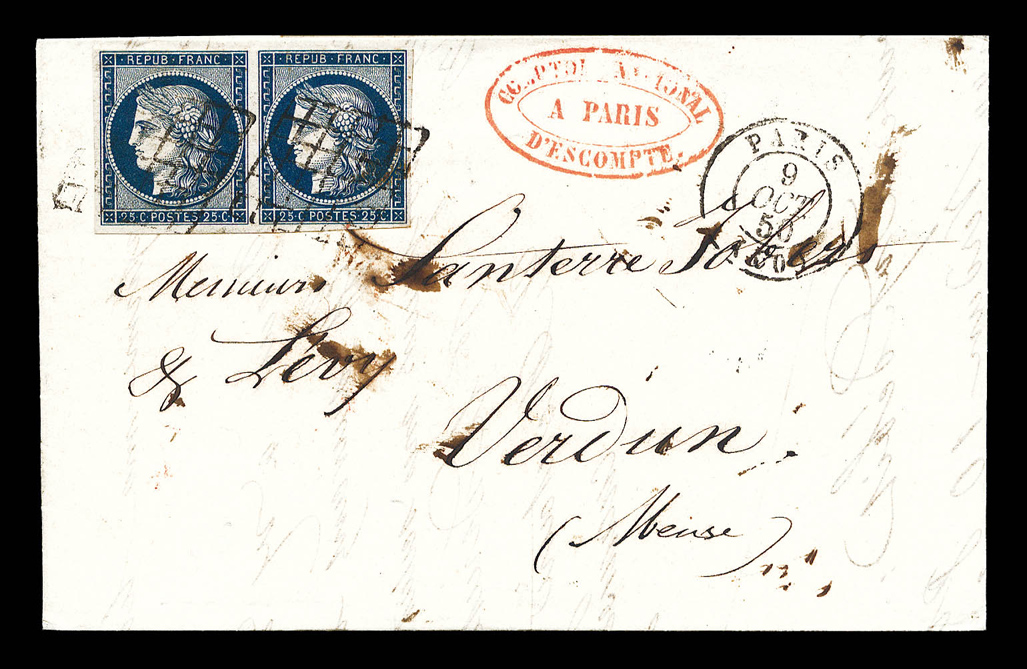 REPUB·FRANC· REPUB·FRANC·
25·C POSTES 25·C· 25·C POSTES 25·C·
COMPTOIR NATIONAL
A PARIS
D'ESCOMPTE
PARIS
9
OCT
50
Messieurs Lanterre
& Levy
Verdun.
(Meuse)